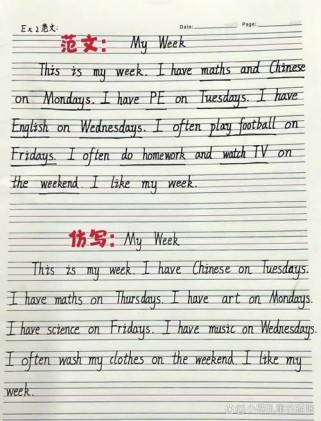 Ex 2 范文:
Date: Page:
范文: My Week
This is my week. I have maths and Chinese
on Mondays. I have PE on Tuesdays. I have
English on Wednesdays. I often play football on
Fridays. I often do homework and watch TV on
the weekend I like my week.
仿写: My Week
This is my week. I have Chinese on Tuesdays.
I have maths on Thursdays. I have art on Mondays.
I have science on Fridays. I have music on Wednesdays.
I often wash my clothes on the weekend I like my
week.